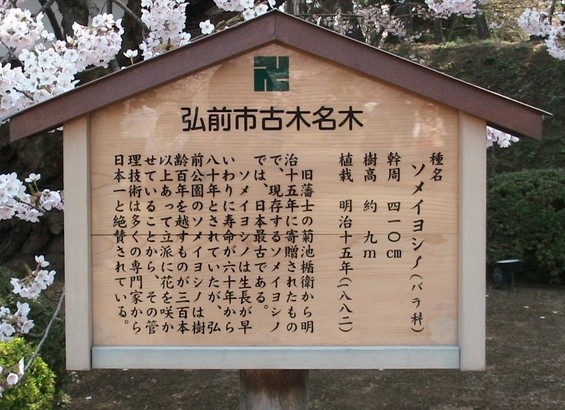 弘前市古木名木
種名
ソメイヨシノ(バラ科)
幹周 四一〇cm
樹高 約 九m
植栽 明治十五年(一八八二)
旧藩士の菊池楯衛から明
治十五年に寄贈されたもの
で、現存するソメイヨシノ
では、日本最古である。
ソメイヨシノは生長が早
いわりに寿命が六十年から
八十年とされていたが、弘
前公園のソメイヨシノは樹
齢百年を越すものが三百本
以上あって立派に花を咲か
せていることから、その管
理技術は多くの専門家から
日本一と絶賛されている。